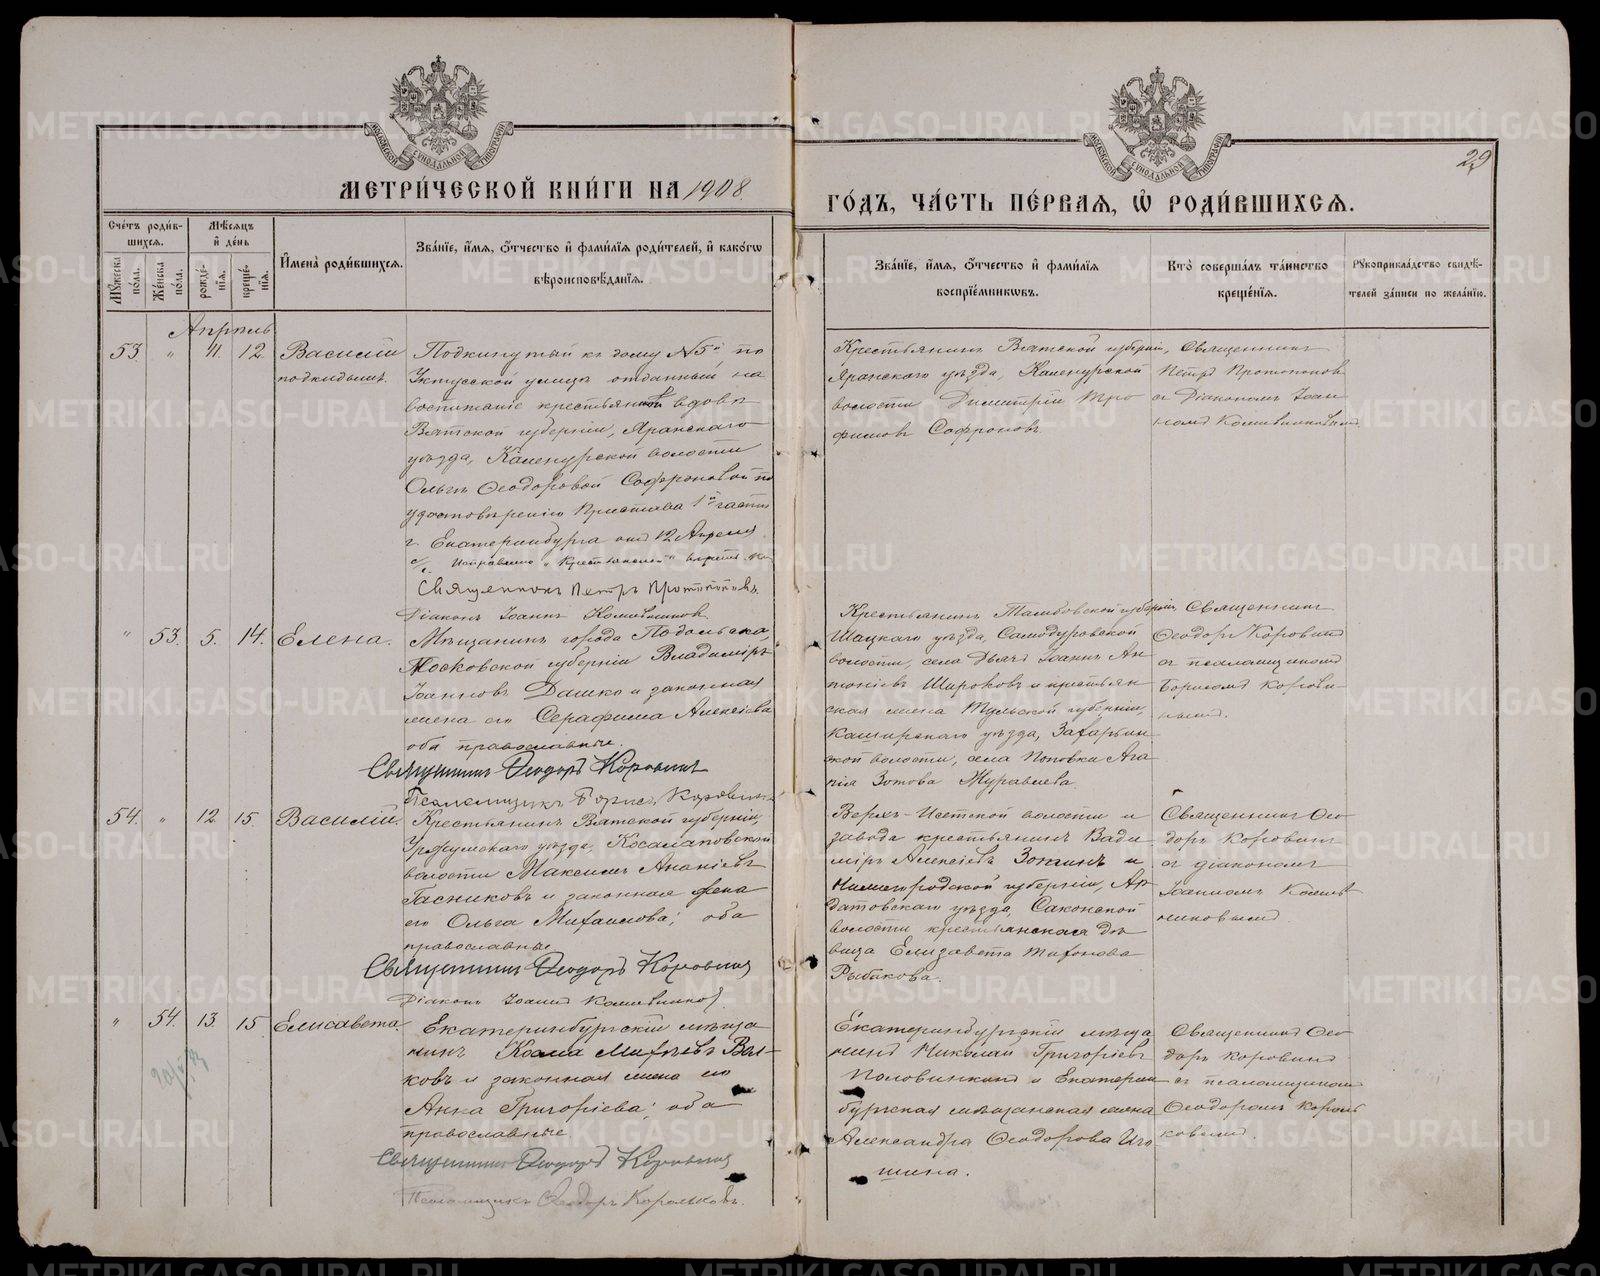 МЕТРИ́ЧЕСКОЙ КНИ́ГИ НА 1908
ГО́ДЪ, ЧА́СТЬ ПЕ́РВАЯ, Ѽ РОДИ́ВШИХСЯ.
29
Сче́тъ роди́в-
шихся.
Му́жеска по́ла.
Же́нска по́ла.
Мѣ́сяцъ и́ де́нь
рожде́-нія.
креще́-нія.
И҆мена̀ роди́вшихся.
Зва́ніе, и҆́мя, ѻ҆́тчество и҆ фами́лія роди́телей, и҆ како́гѡ
вѣроисповѣ́данія.
Зва́ніе, и҆́мя, ѻ҆́тчество и҆ фами́лія
воспріе́мникѡвъ.
Кто̀ соверша́лъ та́инство
креще́нія.
Рꙋкоприкла́дство свидѣ́-
телей за́писи по жела́нію.
Апрѣль
53. " 11. 12. Василій
подкидышъ.
Подкинутый къ дому №5й по
Уктусской улицѣ отданный на
воспитаніе крестьянской вдовѣ
Вятской губерніи, Яранскаго
уѣзда, Каменурской волости
Ольгѣ Ѳеодоровой Софроновой по
удостовѣренію Пристава 1й части
г. Екатеринбурга отъ 12 Апрѣля
Священникъ Петръ Протопоповъ.
Діаконъ Іоаннъ
Крестьянинъ Вятской губерніи,
Яранскаго уѣзда, Каменурской
волости Димитрій Тро
фимовъ Софроновъ.
Священникъ
Петръ Протопоповъ
съ Діакономъ Іоан
номъ
" 53. 5. 14. Елена.
Мѣщанинъ города Подольска,
Московской губерніи Владиміръ
Іоанновъ Дашко и законная
жена его Серафима Алексѣева
оба православные.
Священникъ Ѳеодоръ Коровинъ
Псаломщикъ Борисъ Коровинъ
Крестьянинъ Тамбовской губерніи,
Шацкаго уѣзда, Самодуровской
волости, села Іоаннъ Ан
тоніевъ Широковъ и крестьян
ская жена Тульской губерніи,
Каширскаго уѣзда, Захарьин
ской волости, села Поповки Ага
пія Зотова Журавлева.
Священникъ
Ѳеодоръ Коровинъ
съ псаломщикомъ
Борисомъ Корови
нымъ.
54. " 12. 15. Василій.
Крестьянинъ Вятской губерніи,
Уржумскаго уѣзда, Косолаповской
волости Максимъ Ананіевъ
Гасниковъ и законная жена
его Ольга Михаилова; оба
православные.
Священникъ Ѳеодоръ Коровинъ
Діаконъ Іоаннъ
Верхъ-Исетской волости и
завода крестьянинъ Влади
міръ Алексѣевъ Зоткинъ и
Нижегородской губерніи, Ар
датовскаго уѣзда, Саконской
волости крестьянская дѣ
вица Елизавета Тихонова
Рыбакова.
Священникъ Ѳео
доръ Коровинъ
съ діакономъ
Іоанномъ
" 54. 13. 15 Елисавета.
Екатеринбургскій мѣща
нинъ Косма Михѣевъ Вол-
ковъ и законная жена его
Анна Григоріева; оба
православные.
Священникъ Ѳеодоръ Коровинъ
Псаломщикъ Ѳеодоръ Корольковъ.
Екатеринбургскій мѣща
нинъ Николай Григоріевъ
Половинкинъ и Екатерин
бургская мѣщанская жена
Александра Ѳеодорова Иго
шина.
Священникъ Ѳео
доръ Коровинъ
съ псаломщикомъ
Ѳеодоромъ Король
ковымъ.
METRIKI.GASO-URAL.RU